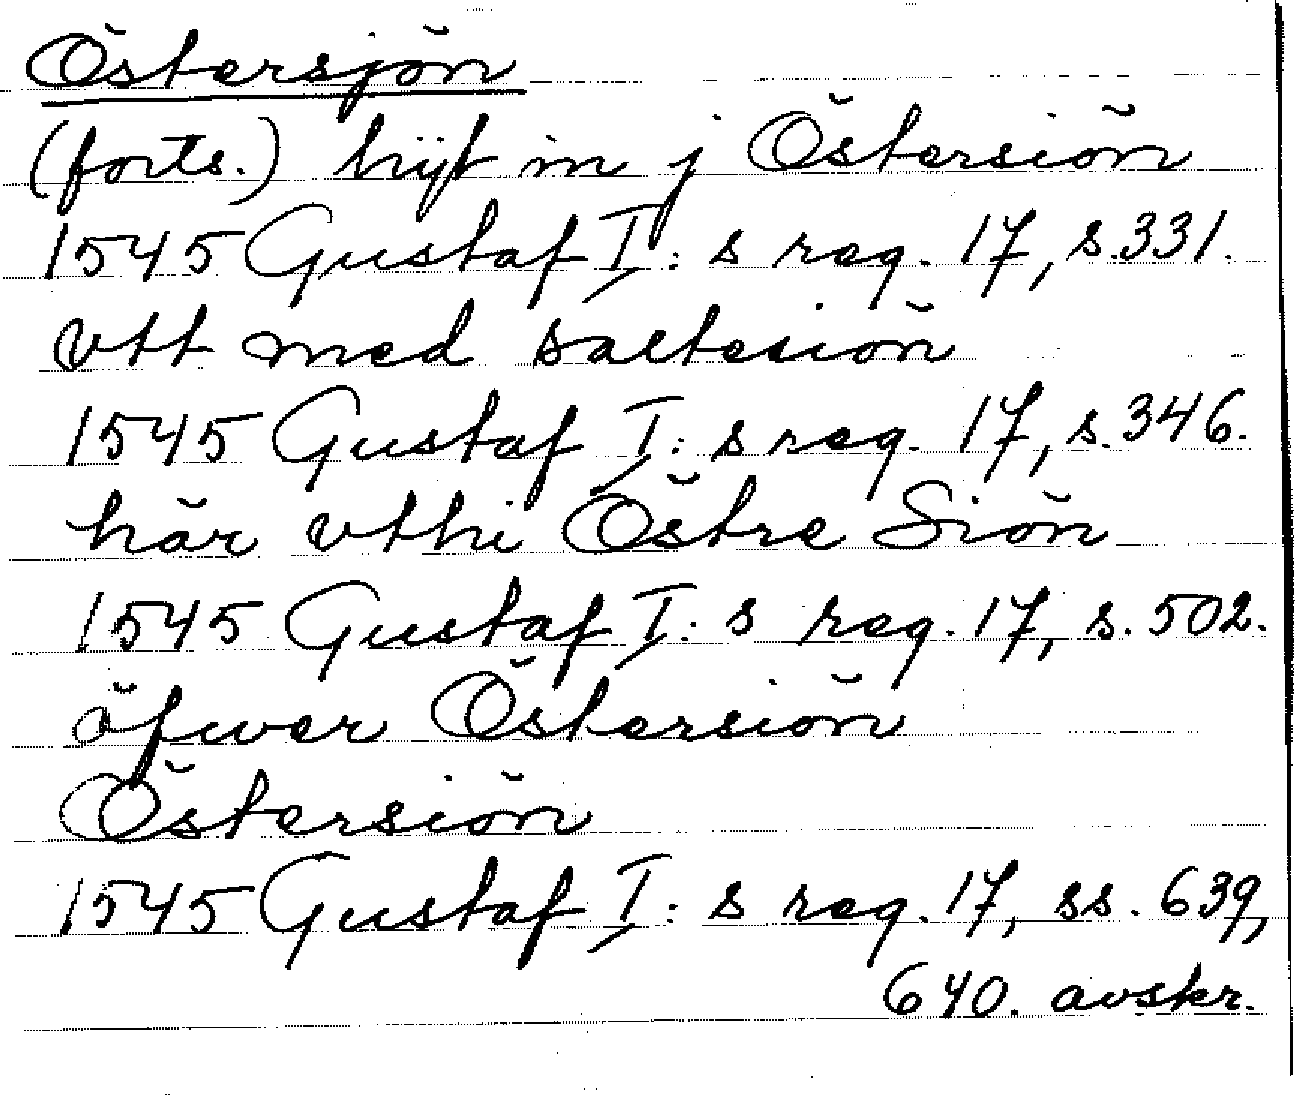 Östersjön
(forts.) hijt in j Östersiön
1545 Gustaf I:s reg. 17, s.331.
vtt med saltesiön
1545 Gustaf I:s reg. 17, s.346.
här vthi Östre Siön
1545 Gustaf I:s reg. 17, s. 502.
öfwer Östersiön
Östersiön
1545 Gustaf I:s reg. 17, ss. 639,
640. avskr.